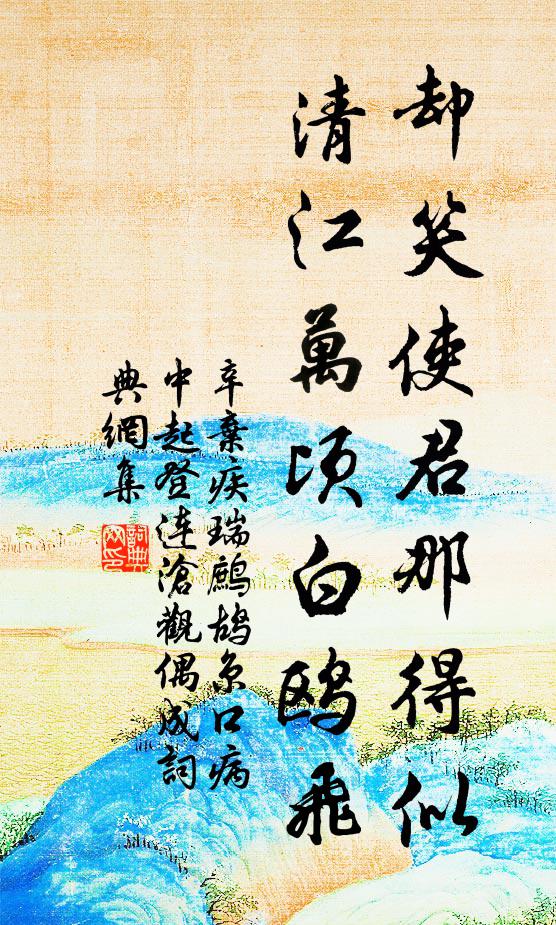 却笑使君那得似
清江萬頃白鷗飛
辛棄疾瑞鷓鴣京口病
中起登連滄觀偶成詞
典網集